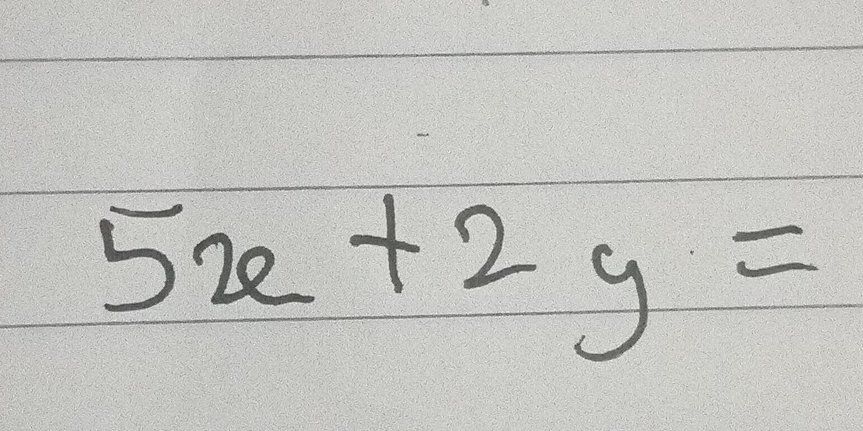 5x + 2 y =